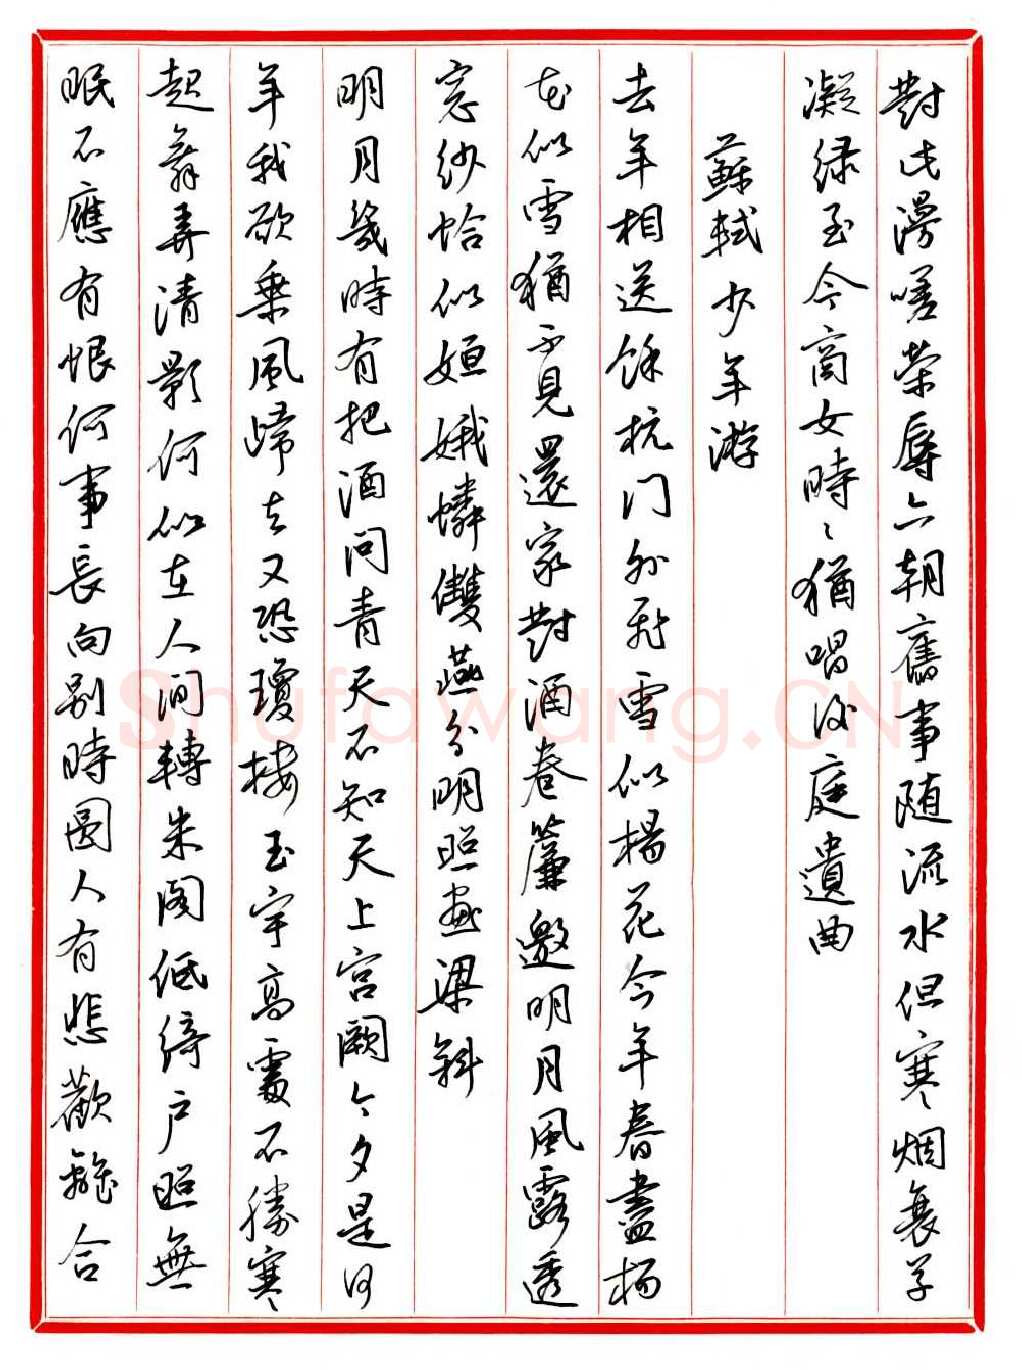 對此漫嗟榮辱六朝舊事随流水但寒烟衰草
凝绿至今商女時〻猶唱後庭遺曲
蘇軾少年游
去年相送餘杭门外飛雪似楊花今年春盡杨
花似雪猶不見還家對酒卷簾邀明月風露透
窓纱恰似姮娥憐雙燕分明照画梁斜
明月幾時有把酒问青天不知天上宮阙今夕是何
年我欲乗風歸去又恐瓊楼玉宇高處不勝寒
起舞弄清影何似在人间轉朱阁低綺户照無
眠不應有恨何事長向别時圆人有悲歡離合
Shufawang.CN